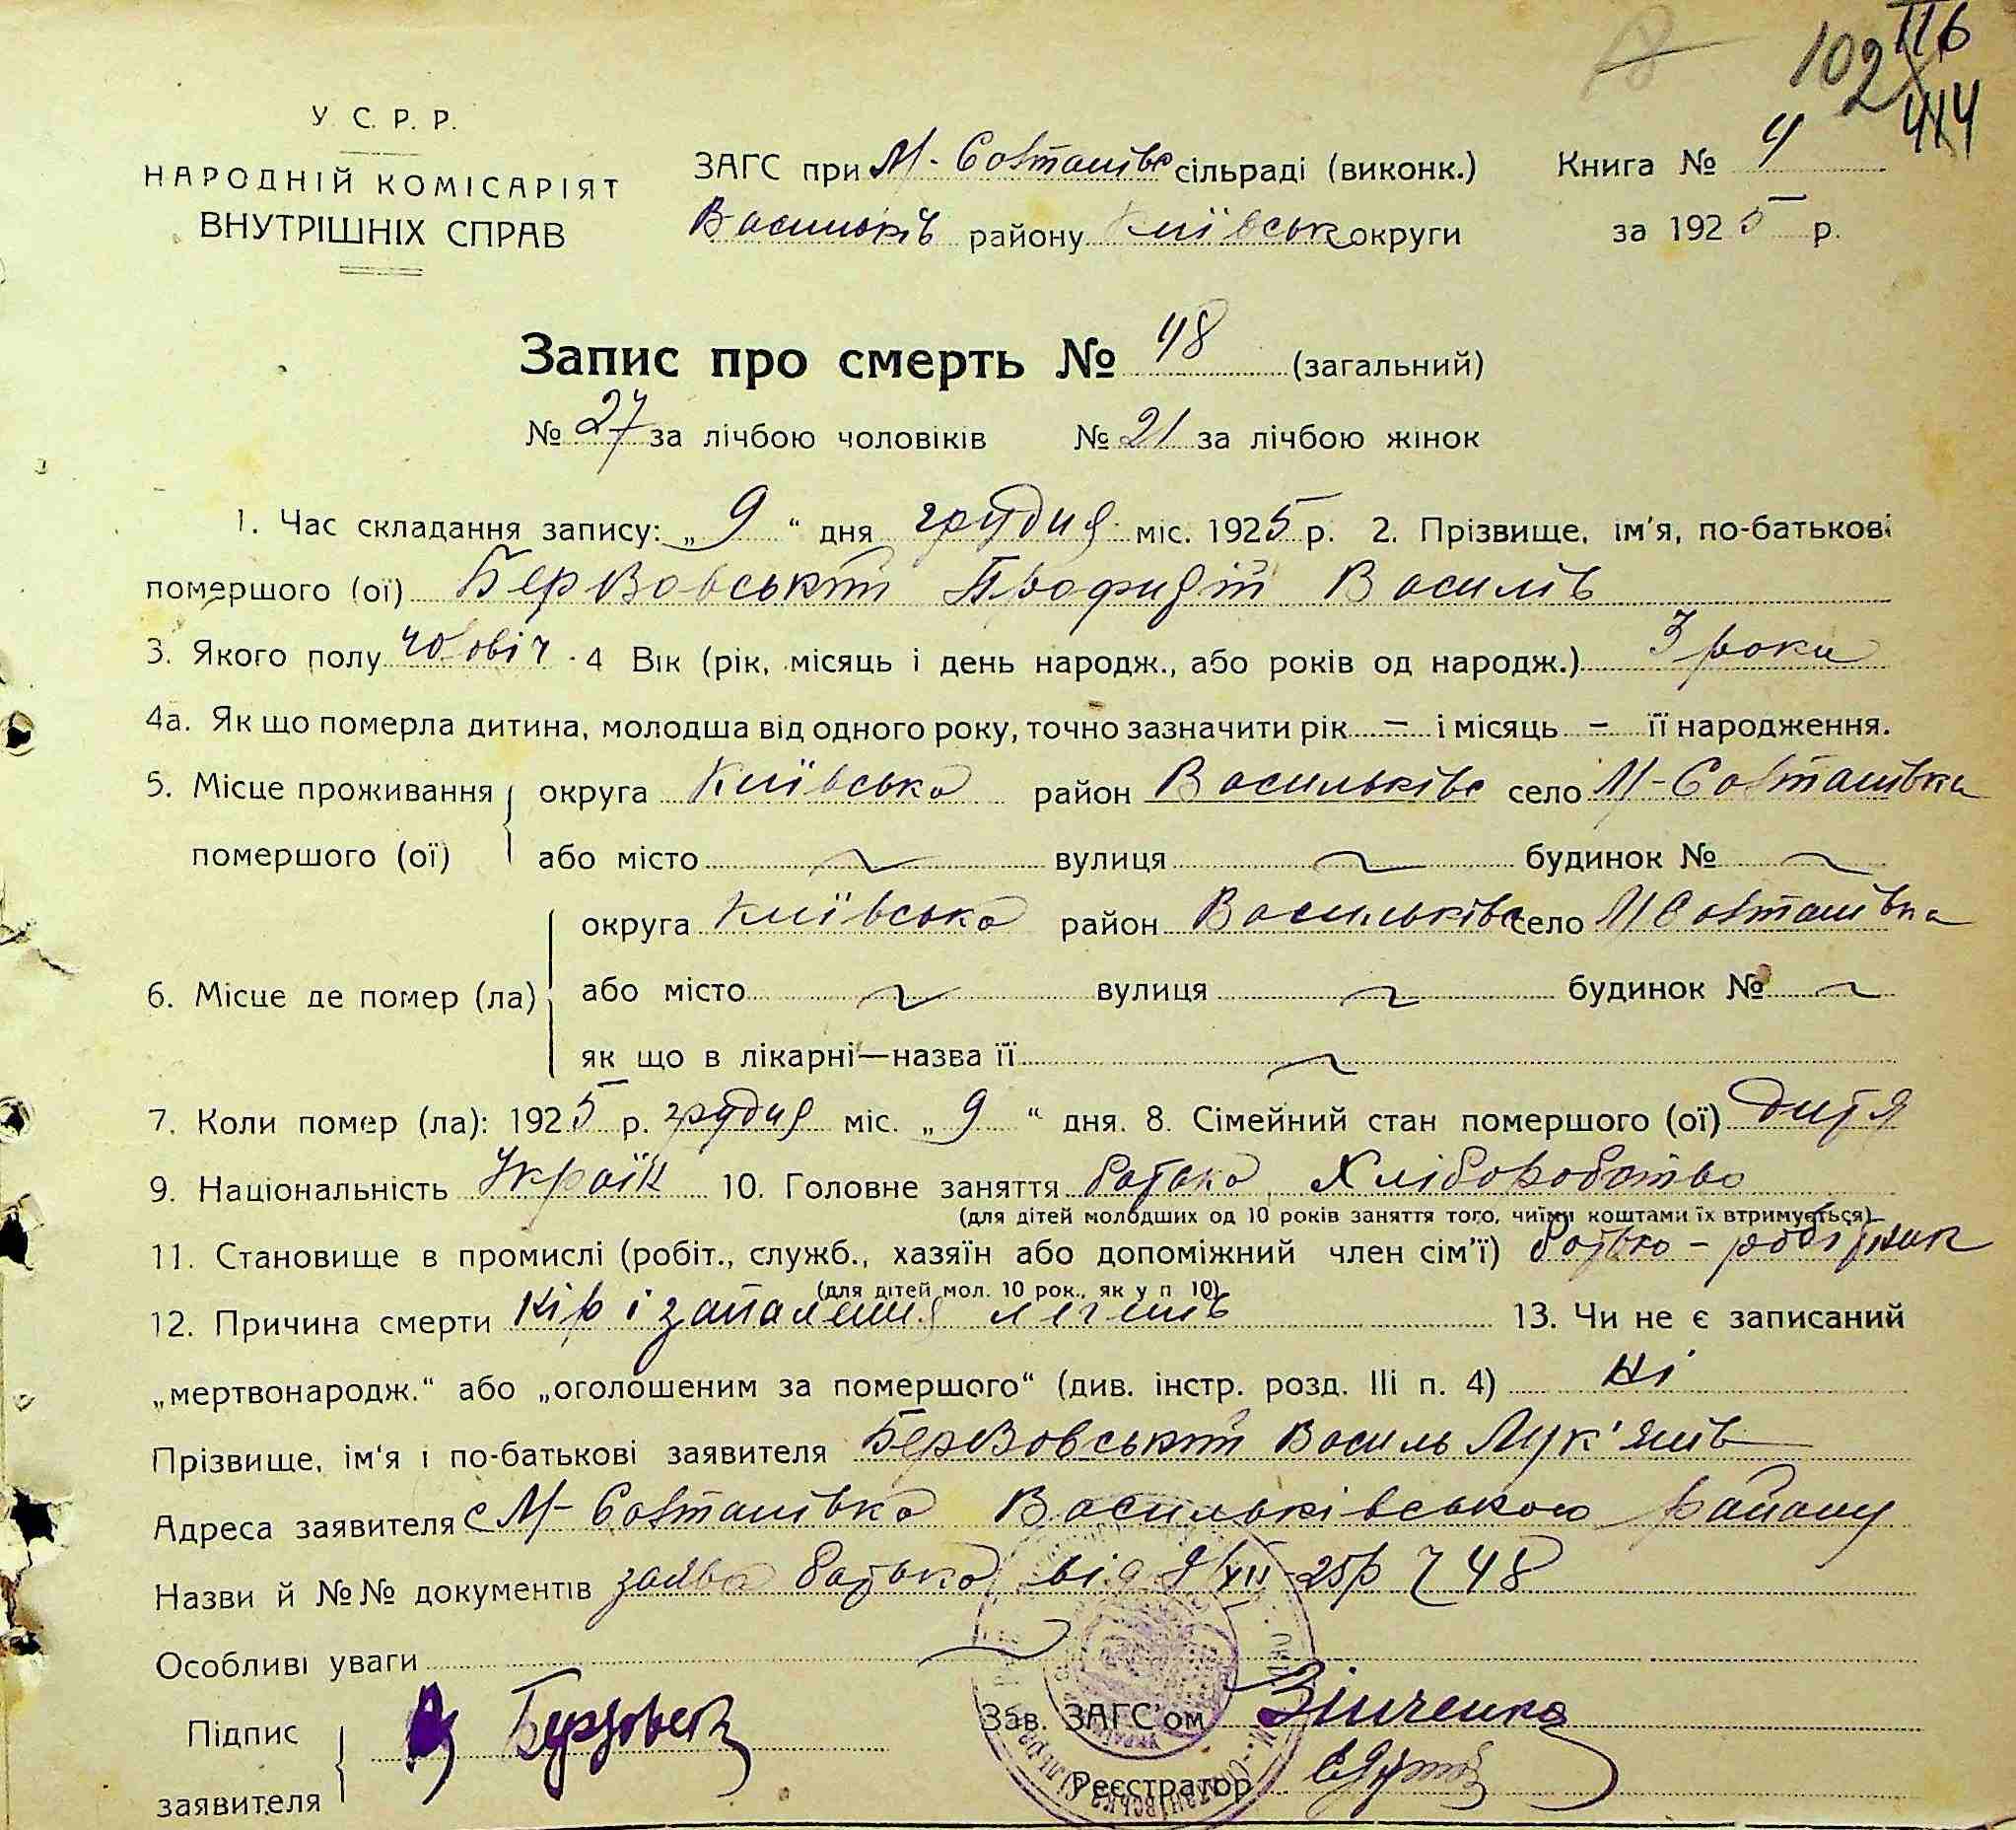 102
116
414
У. С. Р. Р.
НАРОДНІЙ КОМІСАРІЯТ
ВНУТРІШНІХ СПРАВ
ЗАГС при М-Совтанівс сільраді (виконк.)
Васильків району Київськ округи
Книга № 4
за 1925 р.
Запис про смерть № 48 (загальний)
№ 27 за лічбою чоловіків № 21 за лічбою жінок
1. Час складання запису: „9“ дня грудня міс. 1925 р. 2. Прізвище, ім'я, по-батькові
помершого (ої) Василів
3. Якого полу чоловіч. 4 Вік (рік, місяць і день народж., або років од народж.) 3 роки
4а. Як що померла дитина, молодша від одного року, точно зазначити рік — і місяць — її народження.
5. Місце проживання помершого (ої) округа Київська район Васильківс село М-Совтанівка
або місто вулиця будинок №
6. Місце де помер (ла) округа Київська район Васильківс село М Совтанівка
або місто вулиця будинок №
як що в лікарні—назва її
7. Коли помер (ла): 1925 р. грудня міс. „9“ дня. 8. Сімейний стан помершого (ої) дитя
9. Національність Україн 10. Головне заняття батька Хліборобство
(для дітей молодших од 10 років заняття того, чиїми коштами їх втримується)
11. Становище в промислі (робіт., служб., хазяїн або допоміжний член сім'ї) батько - робітник
(для дітей мол. 10 рок., як у п 10)
12. Причина смерти кір і запалення легенів 13. Чи не є записаний
„мертвонародж.“ або „оголошеним за помершого“ (див. інстр. розд. III п. 4) ні
Прізвище, ім'я і по-батькові заявителя Василь Лук'янів
Адреса заявителя с М-Совтанівка Васильківського району
Назви й №№ документів заява батька від 9/XII-25р ч 48
Особливі уваги
Підпис
заявителя
Зав. ЗАГС'ом Зінченко
Реєстратор